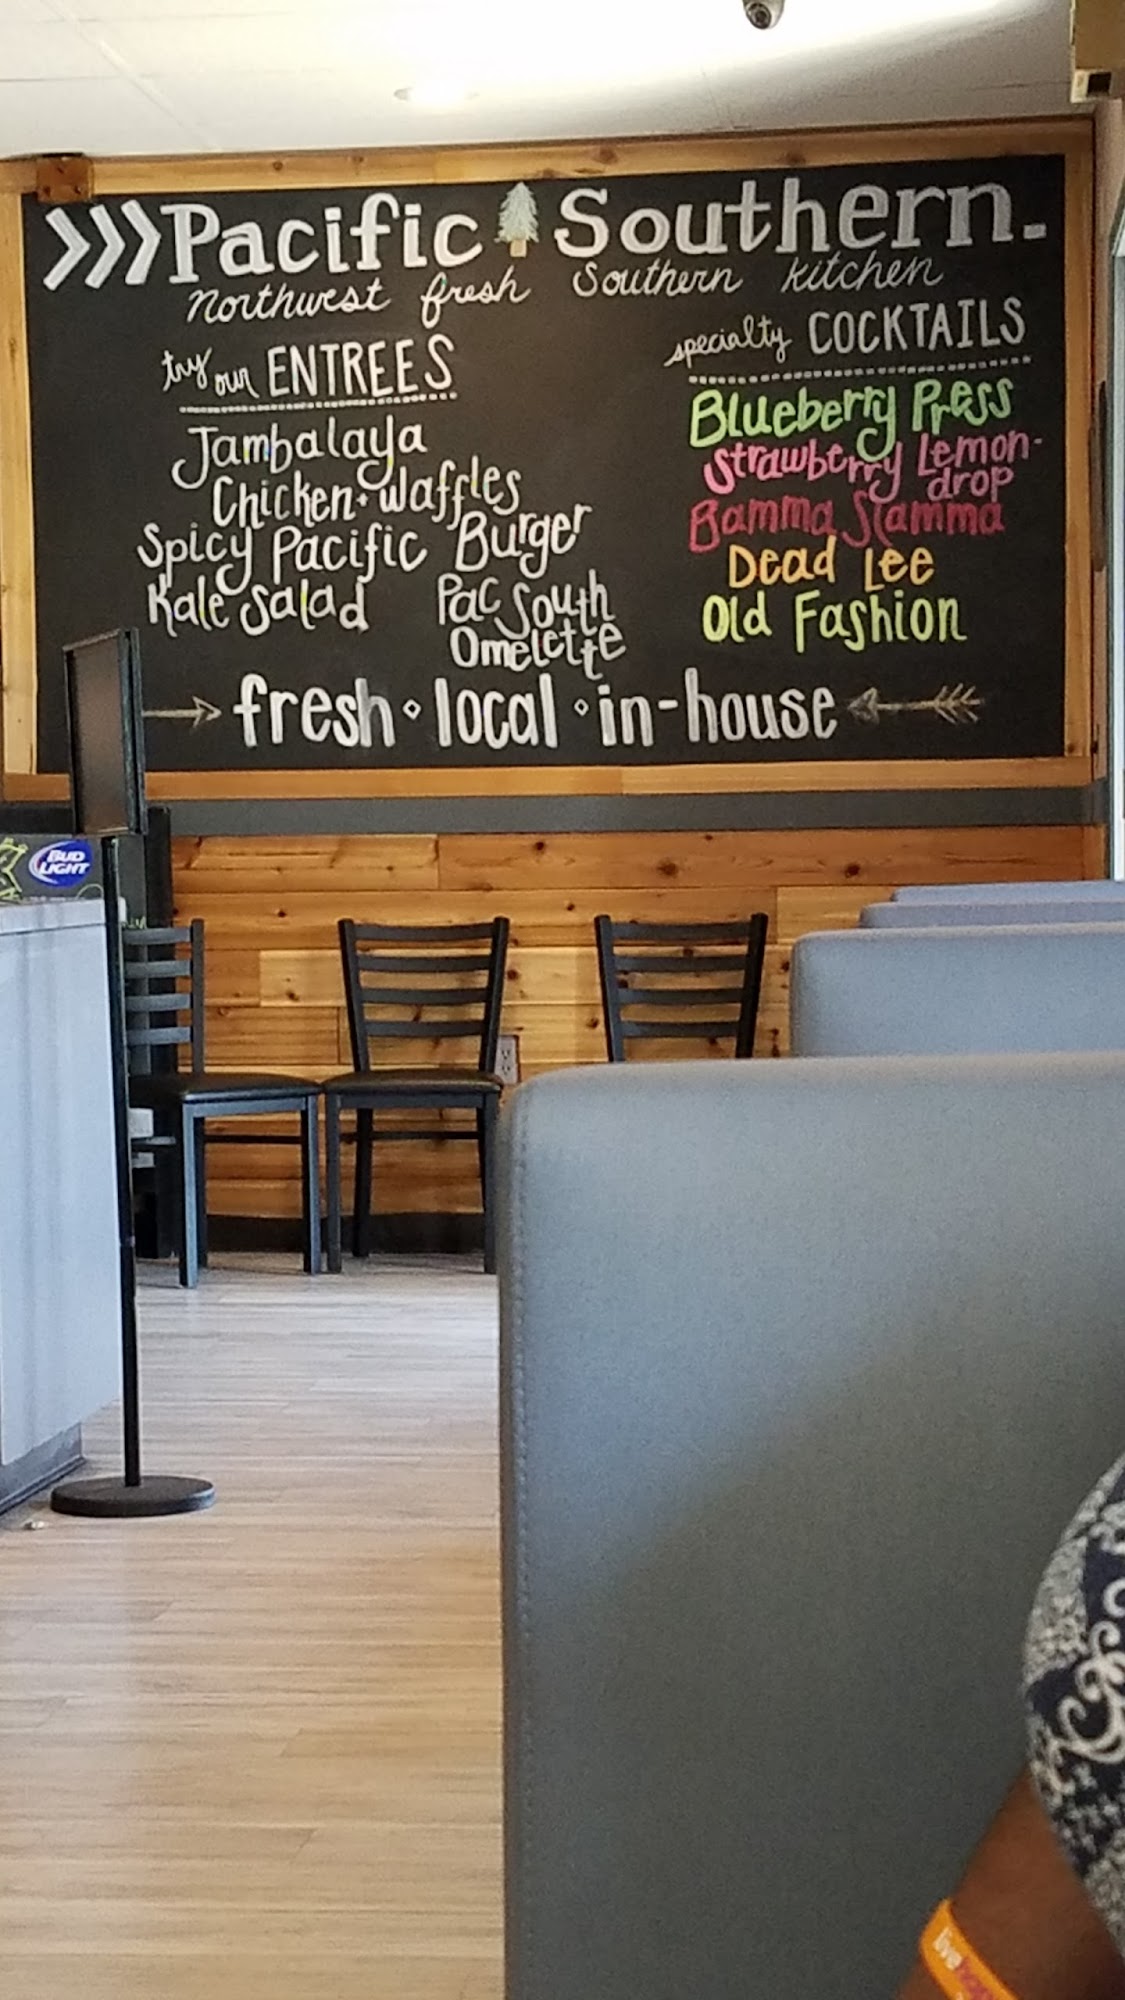 >>>Pacific Southern.
Northwest fresh Southern kitchen
try our ENTREES
Jambalaya
Chicken + Waffles
Spicy Pacific Burger
Kale Salad
Pac South
Omelette
specialty COCKTAILS
Blueberry Press
Strawberry Lemon-
drop
Bamma Slamma
Dead Lee
Old Fashion
fresh · local · in-house
BUD
LIGHT
live